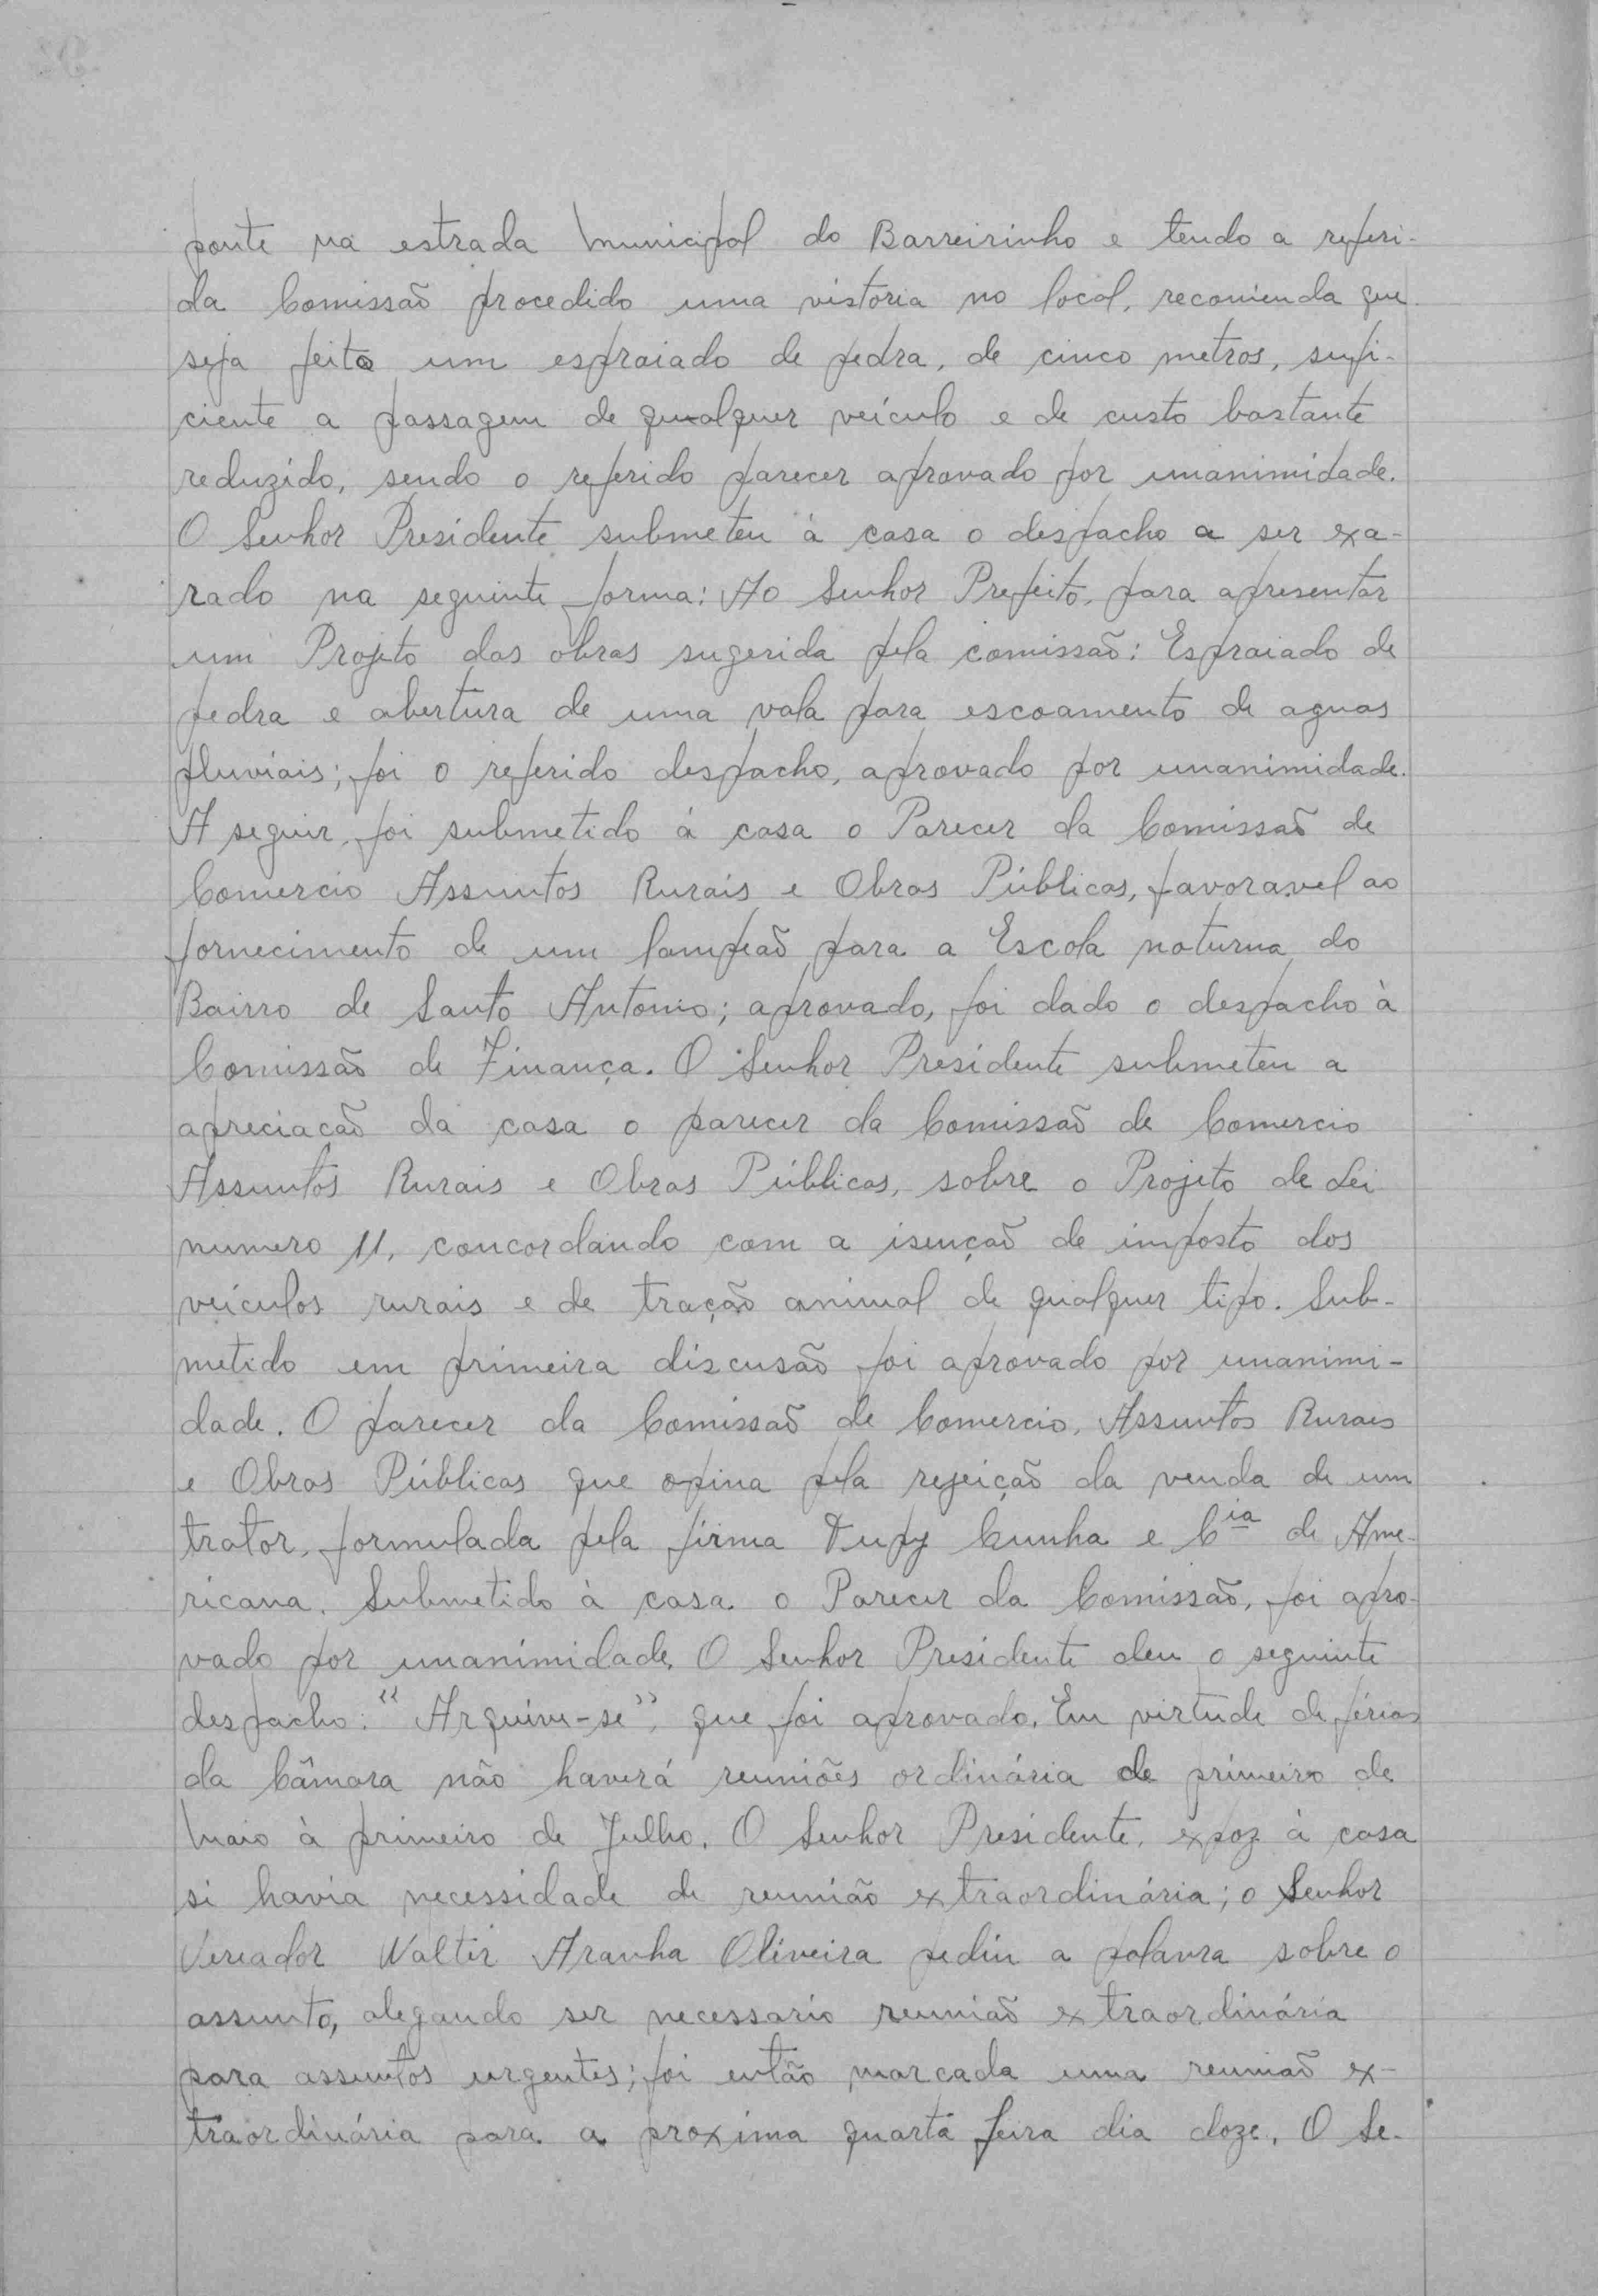 ponte na estrada Municipal do Barreirinho e tendo a referi-
da Comissão procedido uma vistoria no local, recomenda que
seja feito um espraiado de pedra, de cinco metros, sufi-
ciente a passagem de qualquer veículo e de custo bastante
reduzido, sendo o referido parecer aprovado por unanimidade.
O Senhor Presidente submeteu à casa o despacho a ser exa-
rado na seguinte forma: Ao Senhor Prefeito, para apresentar
um Projeto das obras sugerida pela comissão: Espraiado de
pedra e abertura de uma vala para escoamento de aguas
pluviais; foi o referido despacho, aprovado por unanimidade.
A seguir, foi submetido á casa o Parecer da Comissão de
Comercio Assuntos Rurais e Obras Públicas, favoravel ao
fornecimento de um lampeão para a Escola noturna do
Bairro de Santo Antonio; aprovado, foi dado o despacho à
Comissão de Finança. O Senhor Presidente submeteu a
apreciacão da casa o parecer da Comissão de Comercio
Assuntos Rurais e Obras Públicas, sobre o Projeto de Lei
numero 11, concordando com a isenção de imposto dos
veículos rurais e de tração animal de qualquer tipo. Sub-
metido em primeira discusão foi aprovado por unanimi-
dade. O parecer da Comissão de Comercio, Assuntos Rurais
e Obras Públicas que opina pela rejeição da venda de um
trator, formulada pela firma Tupy Cunha e Cia de Ame-
ricana. Submetido à casa o Parecer da Comissão, foi apro-
vado por unanimidade. O Senhor Presidente deu o seguinte
despacho: "Arquive-se", que foi aprovado. Em virtude de férias
da Câmara não haverá reuniões ordinária de primeiro de
Maio à primeiro de Julho. O Senhor Presidente, expoz à casa
si havia necessidade de reunião extraordinária; o Senhor
Vereador Waltir Aranha Oliveira pediu a palavra sobre o
assunto, alegando ser necessario reunião extraordinária
para assuntos urgentes; foi então marcada uma reunião ex-
traordinária para a proxima quarta feira dia doze. O Se-